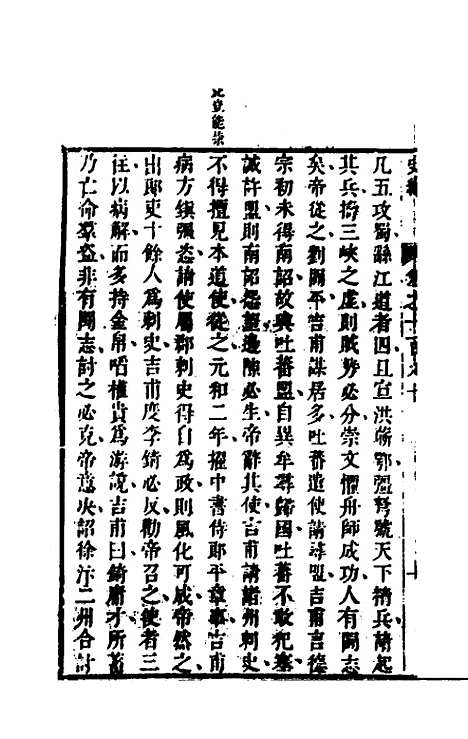 凡五攻蜀繇江道者四且宣洪蘄鄂彊弩號天下精兵請起
其兵擣三峽之虛則賊勢必分崇文懼舟師成功人有鬬志
矣帝從之劉闢平吉甫謀居多吐蕃遣使請尋盟吉甫言德
宗初未得南詔故與吐蕃盟自異牟尋歸國吐蕃不敢犯塞
誠許盟則南詔怨望邊隙必生帝辭其使吉甫請諸州刺史
不得擅見本道使從之元和二年擢中書侍郎平章事吉甫
病方鎮彊恣請使屬郡刺史得自為政則風化可成帝然之
出郎吏十餘人為刺史吉甫度李錡必反勸帝召之使者三
往以病解而多持金帛啗權貴為游說吉甫曰錡庸才所蓄
乃亡命羣盜非有鬬志討之必克帝意决詔徐汴二州合討